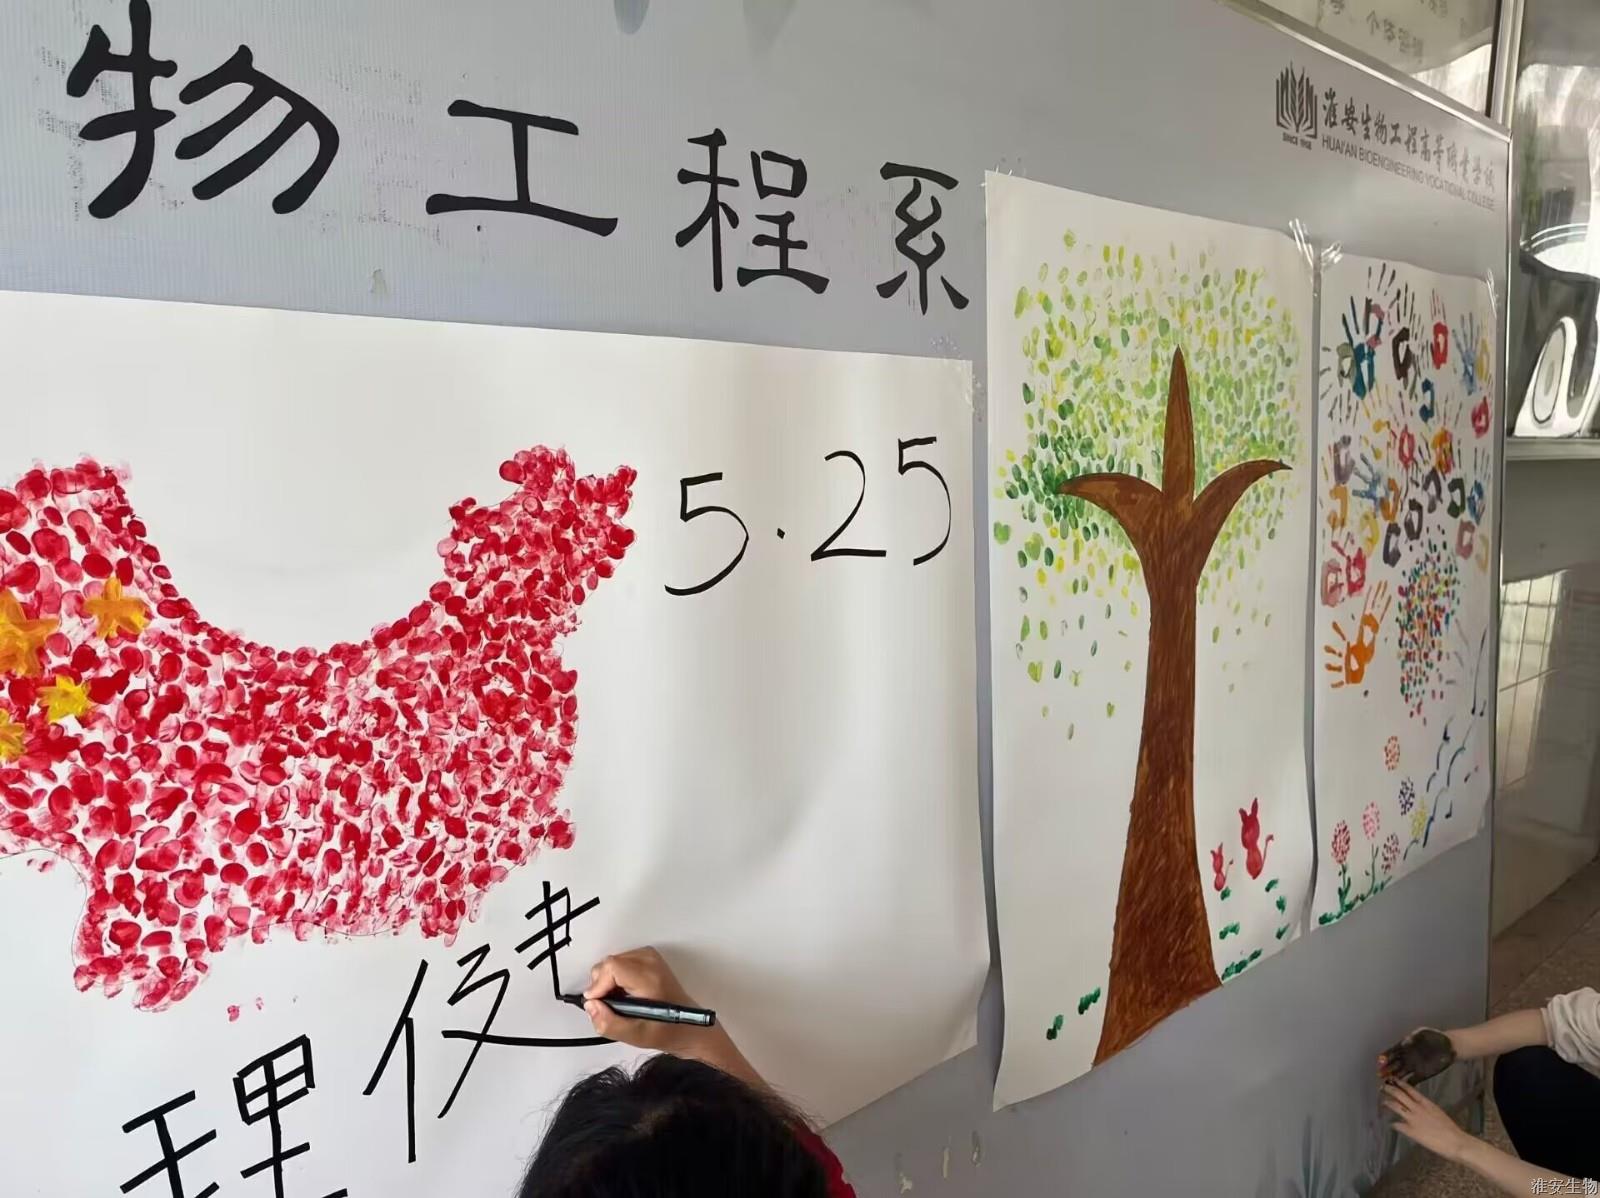 物工程系
淮安生物工程高等职业学校
HUAI'AN BIOENGINEERING VOCATIONAL COLLEGE
SINCE 1958
5.25
理健
淮安生物